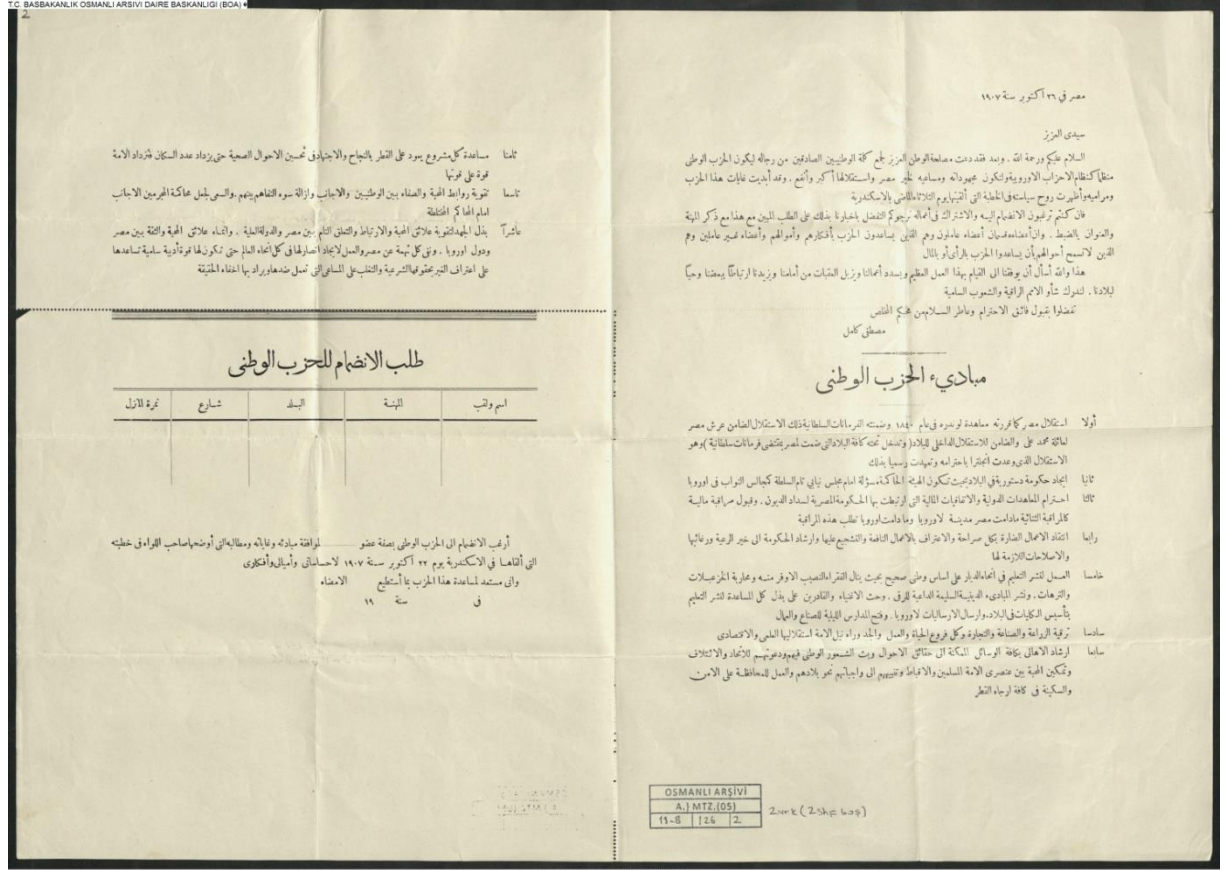 T.C. BASBAKANLIK OSMANLI ARSIVI DAIRE BASKANLIGI (BOA)
2
مصر في ٢٦ أكتوبر سنة ١٩٠٧
سيدى العزيز
السلام عليكم ورحمة الله . وبعد فقد دعت مصلحة الوطن العزيز لجمع كلة الوطنيين الصادقين من رجاله ليكون الحزب الوطنى
منظما كنظام الاحزاب الاوروبية ولتكون مجهوداته ومساعيه لخير مصر واستقلالها أكبر وأنفع . وقد أبديت غايات هذا الحزب
ومراميه وأظهرت روح سياسته فى الخطبة التى ألقيتها يوم الثلاثاء الماضى بالاسكندرية
فان كنتم ترغبون الانضمام اليه والاشتراك فى أعماله نرجوكم التفضل باخبارنا بذلك على الطلب المبين مع هذا مع ذكر المهنة
والعنوان بالضبط . وان أعضاءه قسمان أعضاء عاملون وهم الذين يساعدون الحزب بأفكارهم وأموالهم وأعضاء غير عاملين وهم
الذين لا تسمح أحوالهم بأن يساعدوا الحزب بالرأى أو بالمال
هذا والله أسأل أن يوفقنا الى القيام بهذا العمل العظيم ويسدد أعمالنا ويزيل العقبات من أمامنا ويزيدنا ارتباطًا ببعضنا وحبًا
لبلادنا . لندرك شأو الامم الراقية والشعوب السامية
تفضلوا بقبول فائق الاحترام وعاطر السلام من محبكم المخلص
مصطفى كامل
مباديء الحزب الوطنى
أولا استقلال مصر كما قررته معاهدة لوندره فى عام ١٨٤٠ وضمنته الفرمانات السلطانية ذلك الاستقلال الضامن عرش مصر
لعائلة محمد على والضامن للاستقلال الداخلى للبلاد (وتدخل تحته كافة البلاد التى ضمت لمصر بمقتضى فرمانات سلطانية ) وهو
الاستقلال الذى وعدت انجلترا باحترامه وتعهدت رسميا بذلك
ثانيا ايجاد حكومة دستورية فى البلاد بحيث تكون الهيئة الحاكمة مسؤلة امام مجلس نيابى تام السلطة كمجالس النواب فى اوروبا
ثالثا احترام المعاهدات الدولية والاتفاقيات المالية التى ارتبطت بها الحكومة المصرية لسداد الديون . وقبول مراقبة مالية
كالمراقبة الثنائية مادامت مصر مدينة لاوروبا وما دامت اوروبا تطلب هذه المراقبة
رابعا انتقاد الاعمال الضارة بكل صراحة والاعتراف بالاعمال النافعة والتشجيع عليها وارشاد الحكومة الى خير الرعية ورغائبها
والاصلاحات اللازمة لها
خامسا العمل لنشر التعليم فى انحاء الديار على اساس وطنى صحيح بحيث ينال الفقراء النصيب الاوفر منه ومحاربة الخزعبلات
والترهات . ونشر المبادىء الدينية السليمة الداعية للرقى . وحث الاغنياء والقادرين على بذل كل المساعدة لنشر التعليم
بتأسيس الكليات فى البلاد وارسال الارساليات لاوروبا . وفتح المدارس الليلية للصناع والعمال
سادسا ترقية الزراعة والصناعة والتجارة وكل فروع الحياة والعمل والجد وراء نيل الامة استقلاليها العلمى والاقتصادى
سابعا ارشاد الاهالى بكافة الوسائل الممكنة الى حقائق الاحوال وبث الشعور الوطنى فيهم ودعوتهم للاتحاد والائتلاف
وتمكين المحبة بين عنصرى الامة المسلمين والاقباط وتنبيههم الى واجباتهم نحو بلادهم والعمل للمحافظة على الامن
والسكينة فى كافة ارجاء القطر
ثامنا مساعدة كل مشروع يعود على القطر بالنجاح والاجتهاد فى تحسين الاحوال الصحية حتى يزداد عدد السكان فتزداد الامة
قوة على قوتها
تاسعا تقوية روابط المحبة والصفاء بين الوطنيين والاجانب وازالة سوء التفاهم بينهم والسعى لجعل محاكمة المجرمين الاجانب
امام المحاكم المختلطة
عاشرا بذل الجهد لتقوية علائق المحبة والارتباط والتعلق التام بين مصر والدولة العلية . وانماء علائق المحبة والثقة بين مصر
ودول اوروبا . ونفى كل تهمة عن مصر والعمل لايجاد انصار لها فى كل أنحاء العالم حتى تكون لها قوة أدبية سامية تساعدها
على اعتراف الغير بحقوقها الشرعية والتغلب على المساعى التى تعمل ضدها ويراد بها اخفاء الحقيقة
طلب الانضمام للحزب الوطنى
اسم ولقب المهنة البلد شارع نمرة المنزل
أرغب الانضمام الى الحزب الوطنى بصفة عضو لموافقة مبادئه وغاياته ومطالبه التى أوضحها صاحب اللواء فى خطبته
التى ألقاها فى الاسكندرية يوم ٢٢ أكتوبر سنة ١٩٠٧ لاحساساتى وأميالى وأفكارى
وانى مستعد لمساعدة هذا الحزب بما أستطيع الامضاء
فى سنة ١٩
OSMANLI ARŞİVİ
A.} MTZ.(05)
19-B 126 2
2 vrk (2 shf boş)